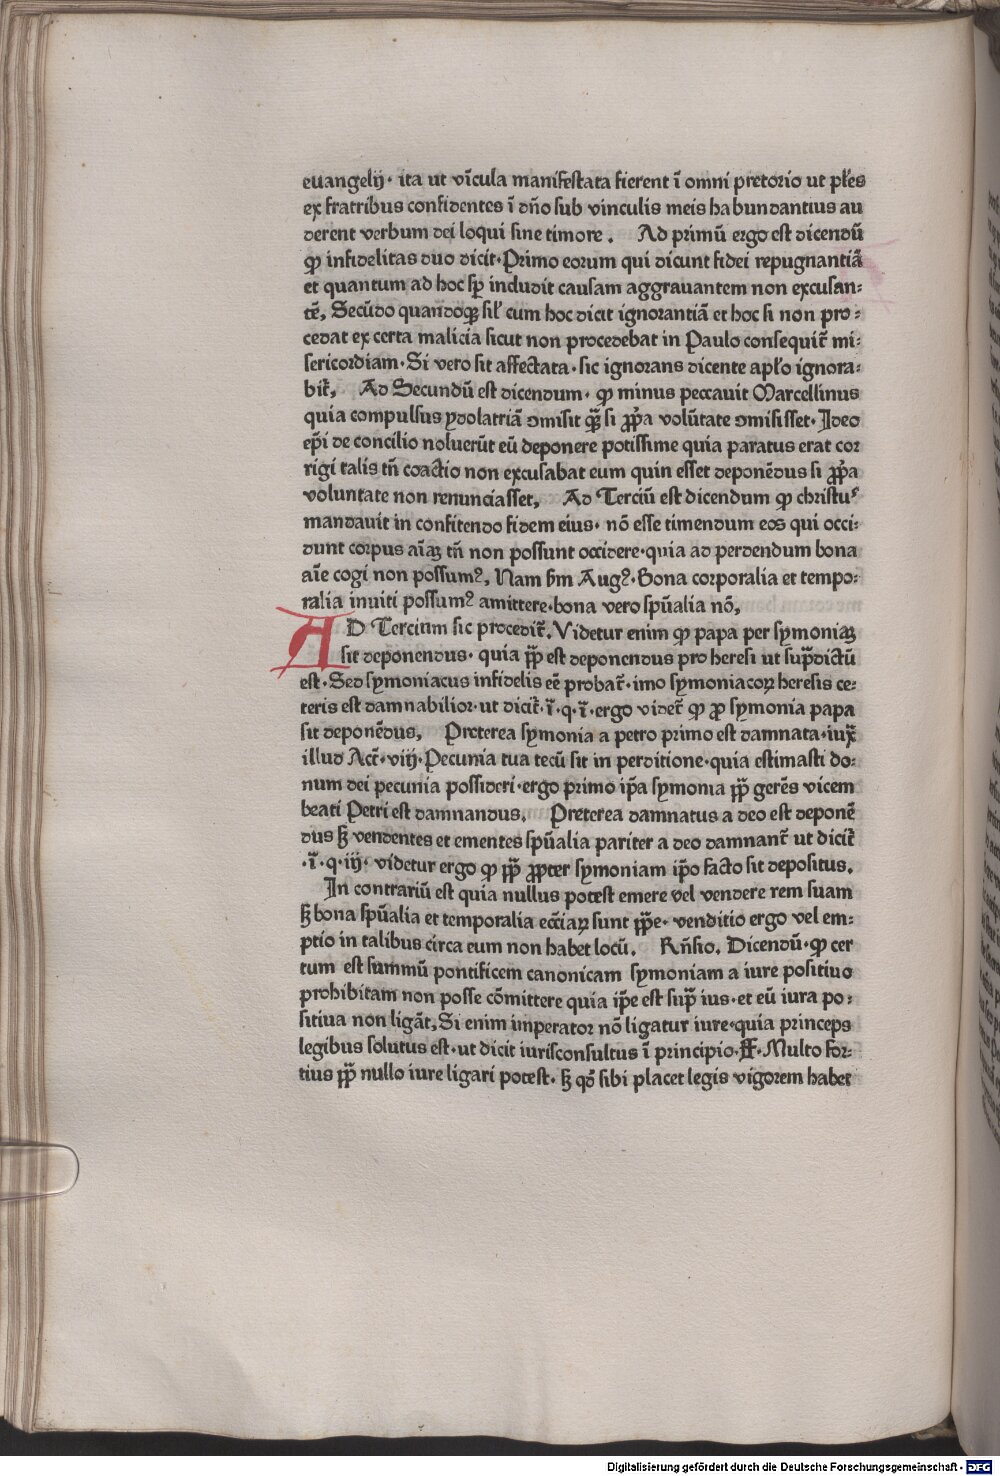 euangelij· ita ut vĩcula manifestata fierent ĩ omni pretorio ut pl̃es
ex fratribus confidentes ĩ dño sub vinculis meis habundantius au
derent verbum dei loqui sine timore . Ad primũ ergo est dicendũ
ꝙ infidelitas duo dicit·Primo eorum qui dicunt fidei repugnantiã
et quantum ad hoc sp̃ includit causam aggrauantem non excusan⸗
tẽ, Secũdo quandoqꝫ sil̃ cum hoc dicit ignorantiã et hoc si non pro⸗
cedat ex certa malicia sicut non procedebat in Paulo consequit̃ mi⸗
sericordiam·Si vero sit affectata·sic ignorans dicente apl̃o ignora⸗
bit̃, Ad Secundũ est dicendum· ꝙ minus peccauit Marcellinus
quia compulsus ydolatriã ꝯmisit qꝫ̃ si ꝓp̃a volũtate ꝯmisisset·Ideo
ep̃i de concilio noluerũt eũ deponere potissime quia paratus erat cor
rigi talis tñ coactio non excusabat eum quin esset deponẽdus si ꝓp̃a
voluntate non renunciasset, Ad Terciũ est dicendum ꝙ christuˢ
mandauit in confitendo fidem eius· nõ esse timendum eos qui occi⸗
dunt corpus aĩaꝫ tñ non possunt occidere·quia ad perdendum bona
aĩe cogi non possumꝰ, Nam s̃m Augꝰ·Bona corporalia et tempo⸗
ralia inuiti possumꝰ amittere·bona vero sp̃ualia nõ,
AD Tercium sic procedit̃.Videtur enim ꝙ papa per symoniaꝫ
sit deponendus· quia p̃p̃ est deponendus pro heresi ut sup̃dictũ
est·Sed symoniacus infidelis eẽ probat̃·imo symoniacoꝝ heresis ce⸗
teris est damnabilior·ut dicit̃·ĩ·q·ĩ·ergo videt̃ ꝙ ꝓ symonia papa
sit deponẽdus, Preterea symonia a petro primo est damnata·iux̃
illud Act̃·viij·Pecunia tua tecũ sit in perditione·quia estimasti do⸗
num dei pecunia possideri·ergo primo ip̃a symonia p̃p̃ gerẽs vicem
beati Petri est damnandus. Preterea damnatus a deo est deponẽ
dus sꝫ vendentes et ementes sp̃ualia pariter a deo damnant̃ ut dicit̃
·ĩ·q·iij· videtur ergo ꝙ p̃p̃ ꝓpter symoniam ip̃o facto sit depositus.
In contrariũ est quia nullus potest emere vel vendere rem suam
sꝫ bona sp̃ualia et temporalia ecc̃iaꝝ sunt p̃p̃e· venditio ergo vel em⸗
ptio in talibus circa eum non habet locũ. Rñsio. Dicendũ·ꝙ cer
tum est summũ pontificem canonicam symoniam a iure positiuo
prohibitam non posse cõmittere quia ip̃e est sup̃ ius·et eũ iura po⸗
sitiua non ligãt,Si enim imperator nõ ligatur iure·quia princeps
legibus solutus est·ut dicit iurisconsultus ĩ principio·ff·Multo for⸗
tius p̃p̃ nullo iure ligari potest· sꝫ qð sibi placet legis vigorem habet
Digitalisierung gefördert durch die Deutsche Forschungsgemeinschaft - DFG